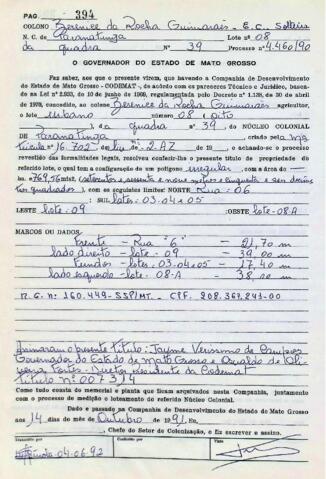 PAG. 394
COLONO Berenice da Rocha Guimarães - E.C. Solteira
N. C. de Paranatinga Lote nº 08
da quadra Nº 39 Processo nº 4.460/90
O GOVERNADOR DO ESTADO DE MATO GROSSO
Faz saber, aos que o presente virem, que havendo a Companhia de Desenvolvimento
do Estado de Mato Grosso - CODEMAT -, de acordo com os pareceres Técnico e Jurídico, basea-
da na Lei nº de 10 de junho de regulamentada pelo Decreto nº 1.138, de 30 de abril
de 1970, concedido, ao colono Berenice da Rocha Guimarães agricultor,
o lote urbano número 08 (oito
), da quadra nº 39, do NÚCLEO COLONIAL
DE Paranatinga, criado pela Ma
trícula nº 16.702 Lº nº 2-AZ de 19 , e achando-se o processo
revestido das formalidades legais, resolveu conferir-lhe o presente título de propriedade do
referido lote, o qual tem a configuração de um polígono irregular, com a área de
has. 769,56 mts. (setecentos e sessenta e nove metros e cinquenta e seis decíme
tros quadrados), com os seguintes limites: NORTE Rua: 06
SUL lotes: 03-04 e 05
LESTE lote-09 OESTE lote-08-A
MARCOS OU DADOS
Frente - Rua "6" - 21,70 m
lado direito - lote - 09 - 39,00 m
Fundos - lotes: 03-04 e 05 - 17,40 m
lado esquerdo - lote - 08-A - 38,10 m
R.G. nº: 160.449-SSP/MT. - CPF. 208.362.241-00
Assinaram o presente título: Jayme Verissimo de Campos
Governador do Estado de Mato Grosso e Osvaldo de Oli
veira Fortes - Diretor Presidente da Codemat
título nº 007314
Como tudo consta do memorial e planta que ficam arquivados nesta Companhia, juntamente
com o processo de medição e loteamento do referido Núcleo Colonial.
Dado e passado na Companhia de Desenvolvimento do Estado de Mato Grosso
aos 14 dias do mês de Outubro de 1991. Eu,
, Chefe do Setor de Colonização, o fiz escrever e assino.
Transcrito por Conferido por Visto
04-06-92